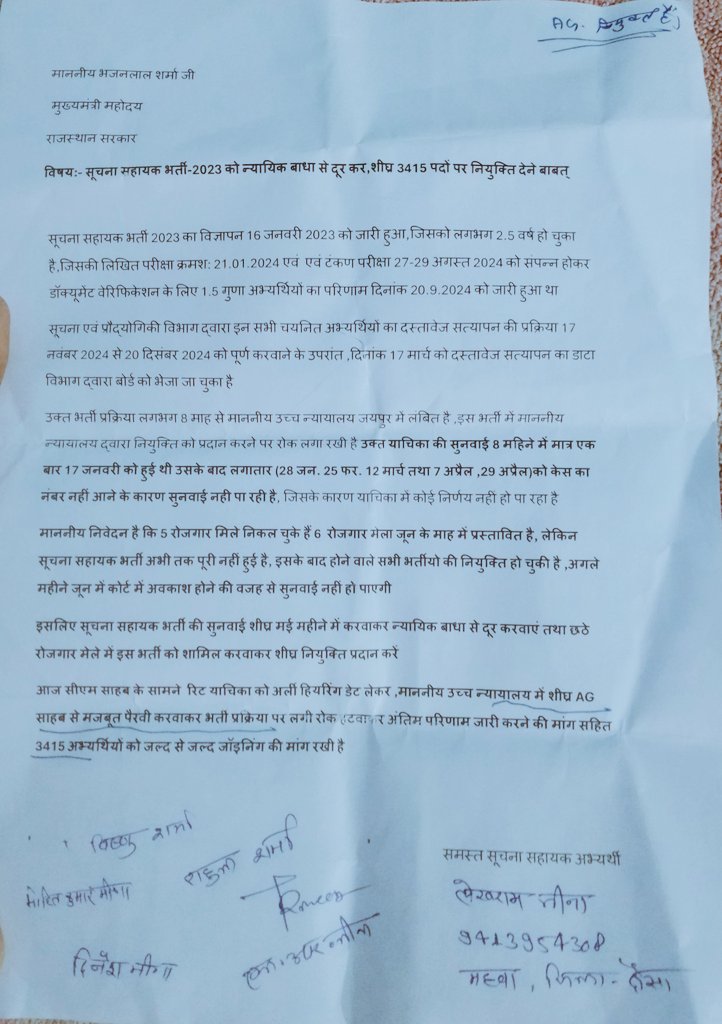 AG. नियुक्त हैं
माननीय भजनलाल शर्मा जी
मुख्यमंत्री महोदय
राजस्थान सरकार
विषय:- सूचना सहायक भर्ती-2023 को न्यायिक बाधा से दूर कर,शीघ्र 3415 पदों पर नियुक्ति देने बाबत्
सूचना सहायक भर्ती 2023 का विज्ञापन 16 जनवरी 2023 को जारी हुआ,जिसको लगभग 2.5 वर्ष हो चुका
है,जिसकी लिखित परीक्षा क्रमश: 21.01.2024 एवं एवं टंकण परीक्षा 27-29 अगस्त 2024 को संपन्न होकर
डॉक्यूमेंट वेरिफिकेशन के लिए 1.5 गुणा अभ्यर्थियों का परिणाम दिनांक 20.9.2024 को जारी हुआ था
सूचना एवं प्रौद्योगिकी विभाग द्वारा इन सभी चयनित अभ्यर्थियों का दस्तावेज सत्यापन की प्रक्रिया 17
नवंबर 2024 से 20 दिसंबर 2024 को पूर्ण करवाने के उपरांत ,दिनांक 17 मार्च को दस्तावेज सत्यापन का डाटा
विभाग द्वारा बोर्ड को भेजा जा चुका है
उक्त भर्ती प्रक्रिया लगभग 8 माह से माननीय उच्च न्यायालय जयपुर में लंबित है ,इस भर्ती में माननीय
न्यायालय द्वारा नियुक्ति को प्रदान करने पर रोक लगा रखी है उक्त याचिका की सुनवाई 8 महिने में मात्र एक
बार 17 जनवरी को हुई थी उसके बाद लगातार (28 जन. 25 फर. 12 मार्च तथा 7 अप्रैल ,29 अप्रैल)को केस का
नंबर नहीं आने के कारण सुनवाई नही पा रही है, जिसके कारण याचिका में कोई निर्णय नहीं हो पा रहा है
माननीय निवेदन है कि 5 रोजगार मिले निकल चुके हैं 6 रोजगार मेला जून के माह में प्रस्तावित है, लेकिन
सूचना सहायक भर्ती अभी तक पूरी नहीं हुई है, इसके बाद होने वाले सभी भर्तीयो की नियुक्ति हो चुकी है ,अगले
महीने जून में कोर्ट में अवकाश होने की वजह से सुनवाई नहीं हो पाएगी
इसलिए सूचना सहायक भर्ती की सुनवाई शीघ्र मई महीने में करवाकर न्यायिक बाधा से दूर करवाएं तथा छठे
रोजगार मेले में इस भर्ती को शामिल करवाकर शीघ्र नियुक्ति प्रदान करें
आज सीएम साहब के सामने रिट याचिका को अर्ली हियरिंग डेट लेकर ,माननीय उच्च न्यायालय में शीघ्र AG
साहब से मजबूत पैरवी करवाकर भर्ती प्रक्रिया पर लगी रोक हटवाकर अंतिम परिणाम जारी करने की मांग सहित
3415 अभ्यर्थियों को जल्द से जल्द जॉइनिंग की मांग रखी है
विष्णु शर्मा
राहुल शर्मा
मोहित कुमार मीणा
दिनेश मीणा
समस्त सूचना सहायक अभ्यर्थी
लेखराम मीना
9413954308
महवा, जिला - दौसा